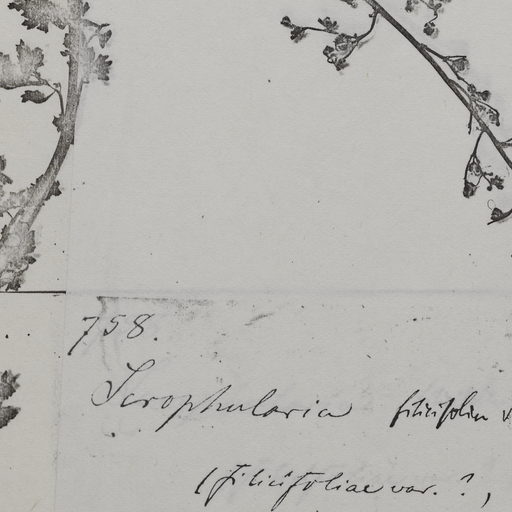 758.
Scrophularia filicifolia v
(filicifoliae var. ?,